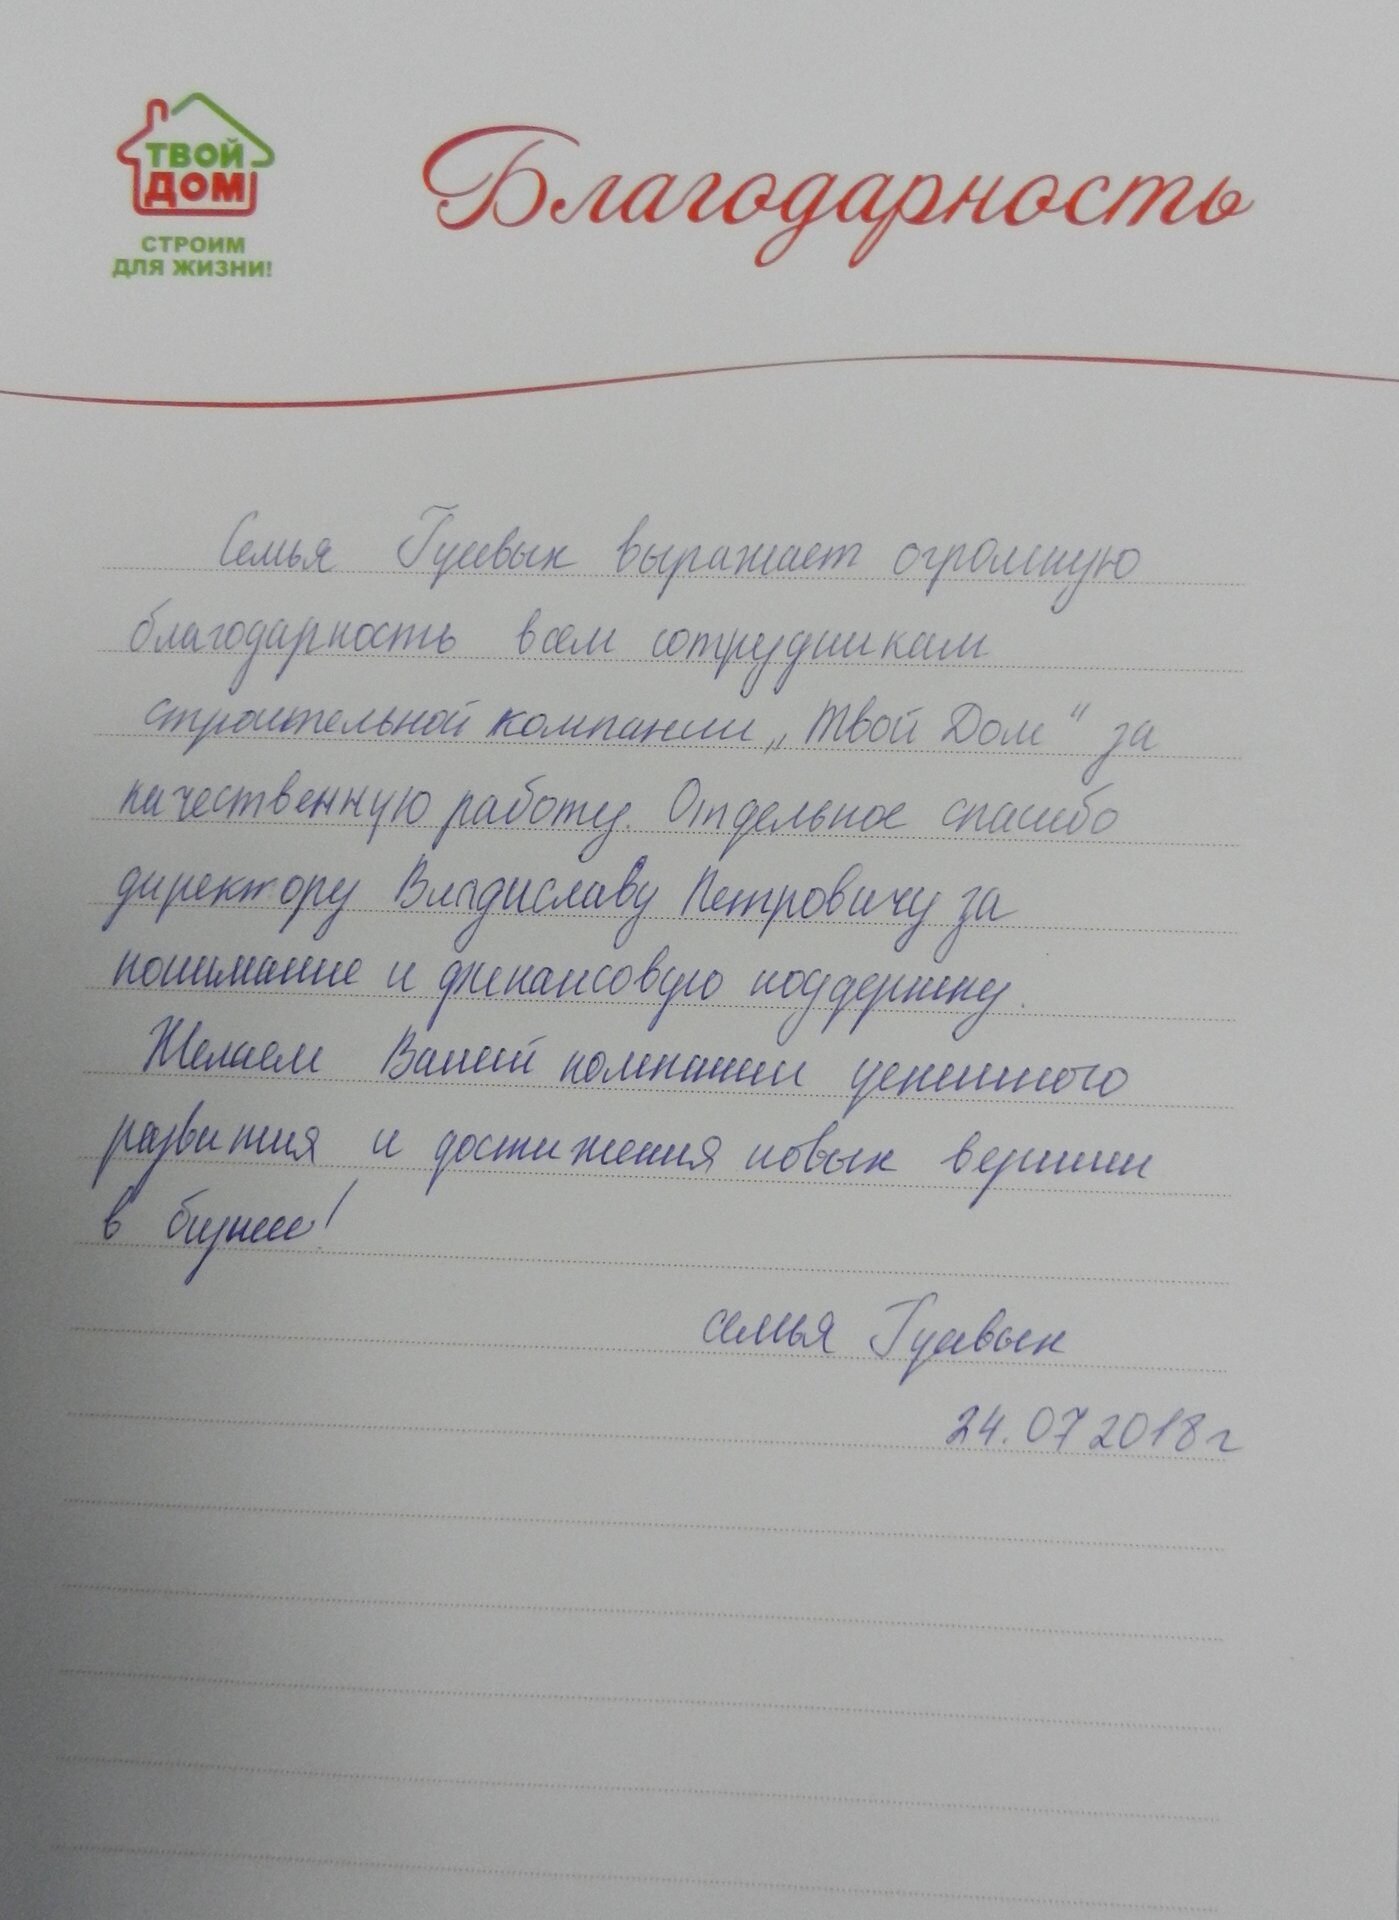 ТВОЙ
ДОМ
СТРОИМ
ДЛЯ ЖИЗНИ!
Благодарность
Семья выражает огромную
благодарность всем сотрудникам
строительной компании „Твой Дом“ за
качественную работу. Отдельное спасибо
директору Владиславу Петровичу за
понимание и финансовую поддержку.
Желаем Вашей компании успешного
развития и достижения новых вершин
в бизнесе!
семья
24.07 2018 г